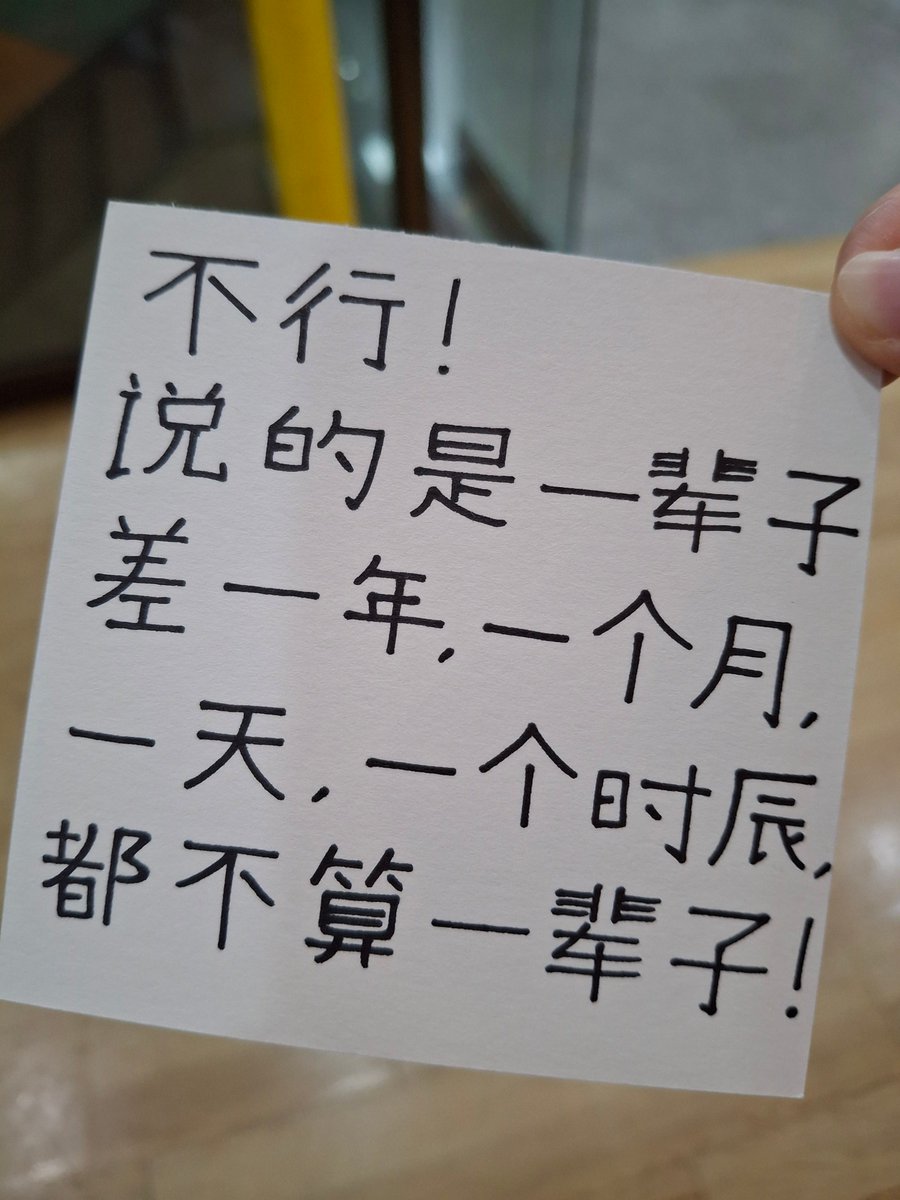 不行！
说的是一辈子
差一年,一个月,
一天,一个时辰,
都不算一辈子！